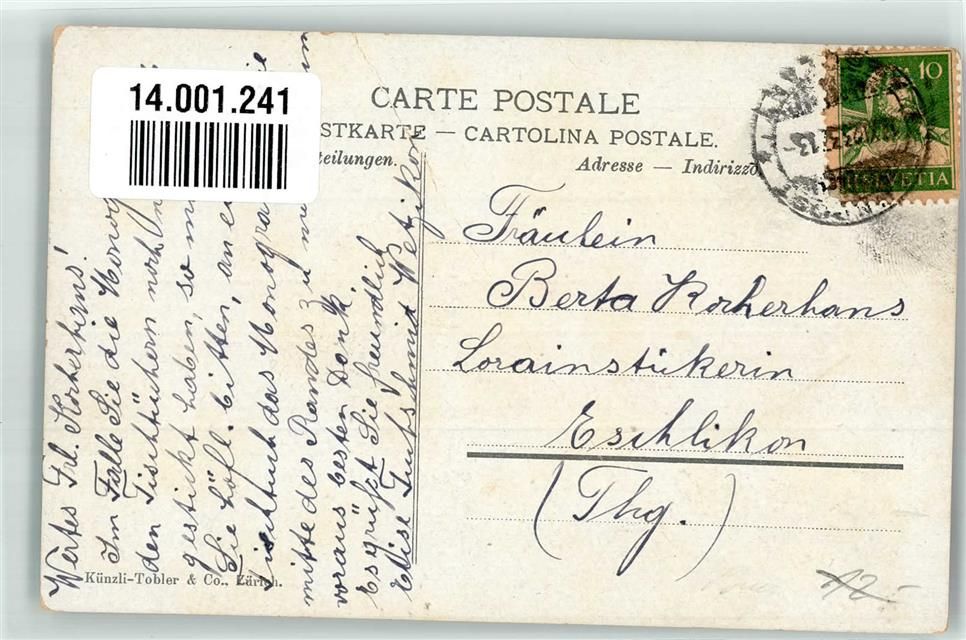 14.001.241
CARTE POSTALE
STKARTE — CARTOLINA POSTALE.
teilungen.
Adresse — Indirizzo
10
HELVETIA
Fräulein
Berta Korherhans
Lorainstikerin
Eschlikon
(Thg.)
Wertes Frl. Korherhans!
Im Falle Sie die
den Tischtüchern noch
gestickt haben, so
Sie höfl. bitten, an
Tischtuch das Monogra
mitte des Randes zu
voraus besten Dank.
Es grüsst Sie freundlich
Elise Wetzikon
Künzli-Tobler & Co., Zürich.
12-